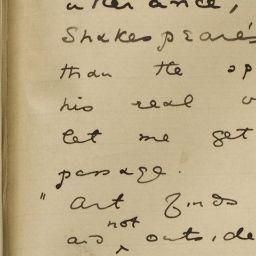 utterance,
Shakespeare's
than the
his real
let me get
passage.
" Art finds
and not outside